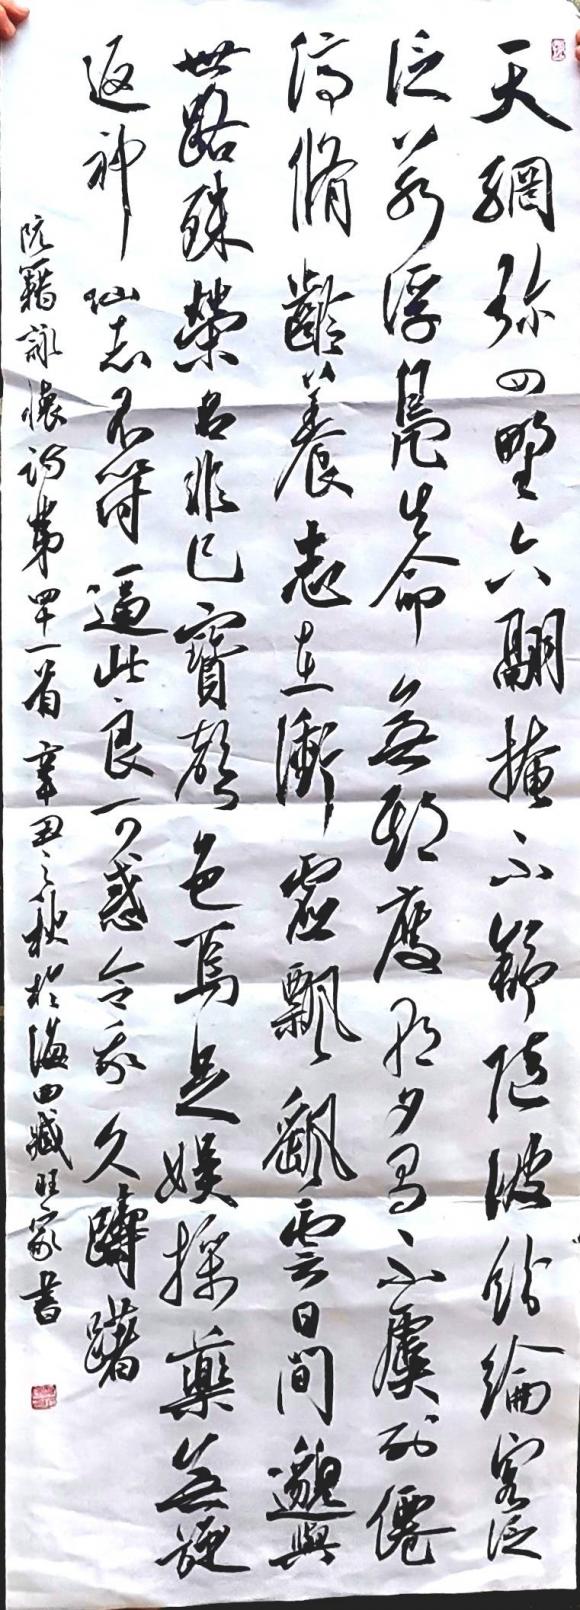 天網弥四野六翮掩不舒隨波紛綸客泛
泛若浮鳧生命無期度朝夕有不虞列僊
停脩齡養志在衝虛飄颻雲日間邈與
世路殊榮名非己寶聲色焉足娛採藥無旋
返神仙志不符逼此良可惑令我久躊躇
阮籍詠懷詩第四十一首 辛丑之秋於海田臧旺家書